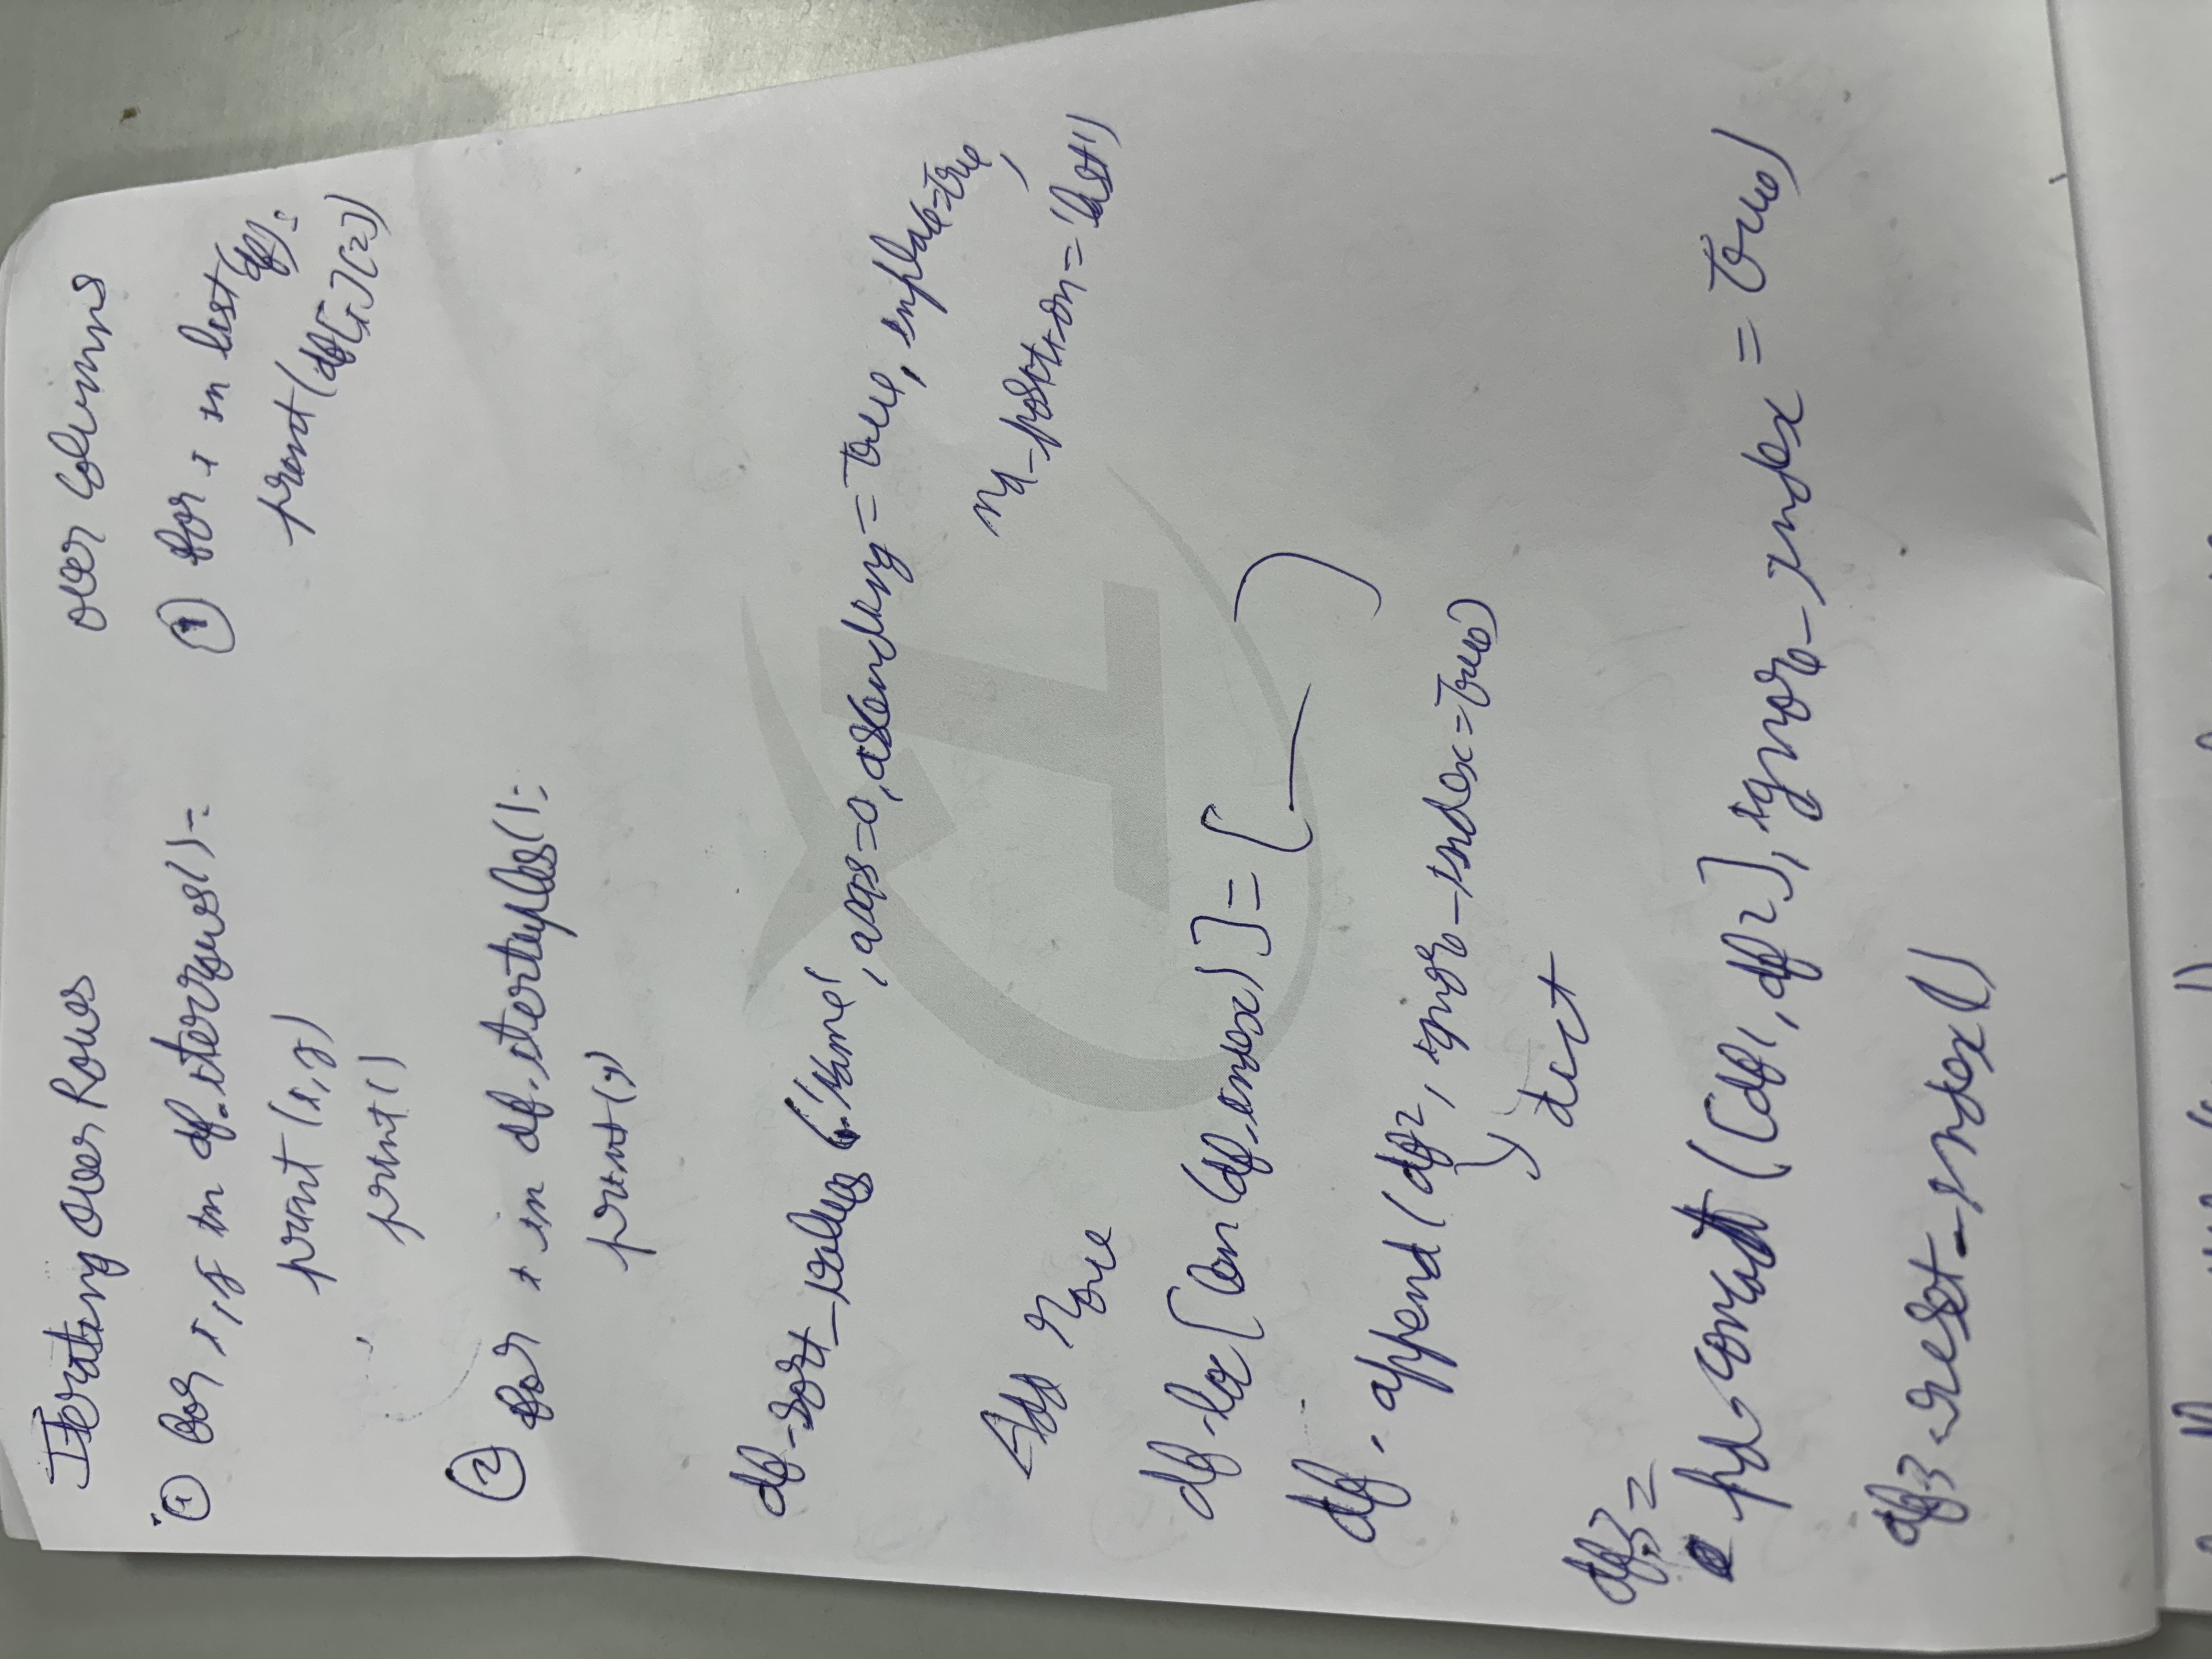 Iterating Over Rows
① for i,j in df.iterrows():
print (i,j)
print()
② for i in df.itertuples():
print(i)
over columns
① for i in list(df):
print(df[i][2])
df.sort_values('Name', axis=0, ascending=True, inplace=True,
na_position='last')
Add row
df.loc[len(df.index)]=[ ]
df.append(df2, ignor_index=True)
dict
df3=
pd.concat([df1, df2], ignor_index=True)
df3.reset_index()